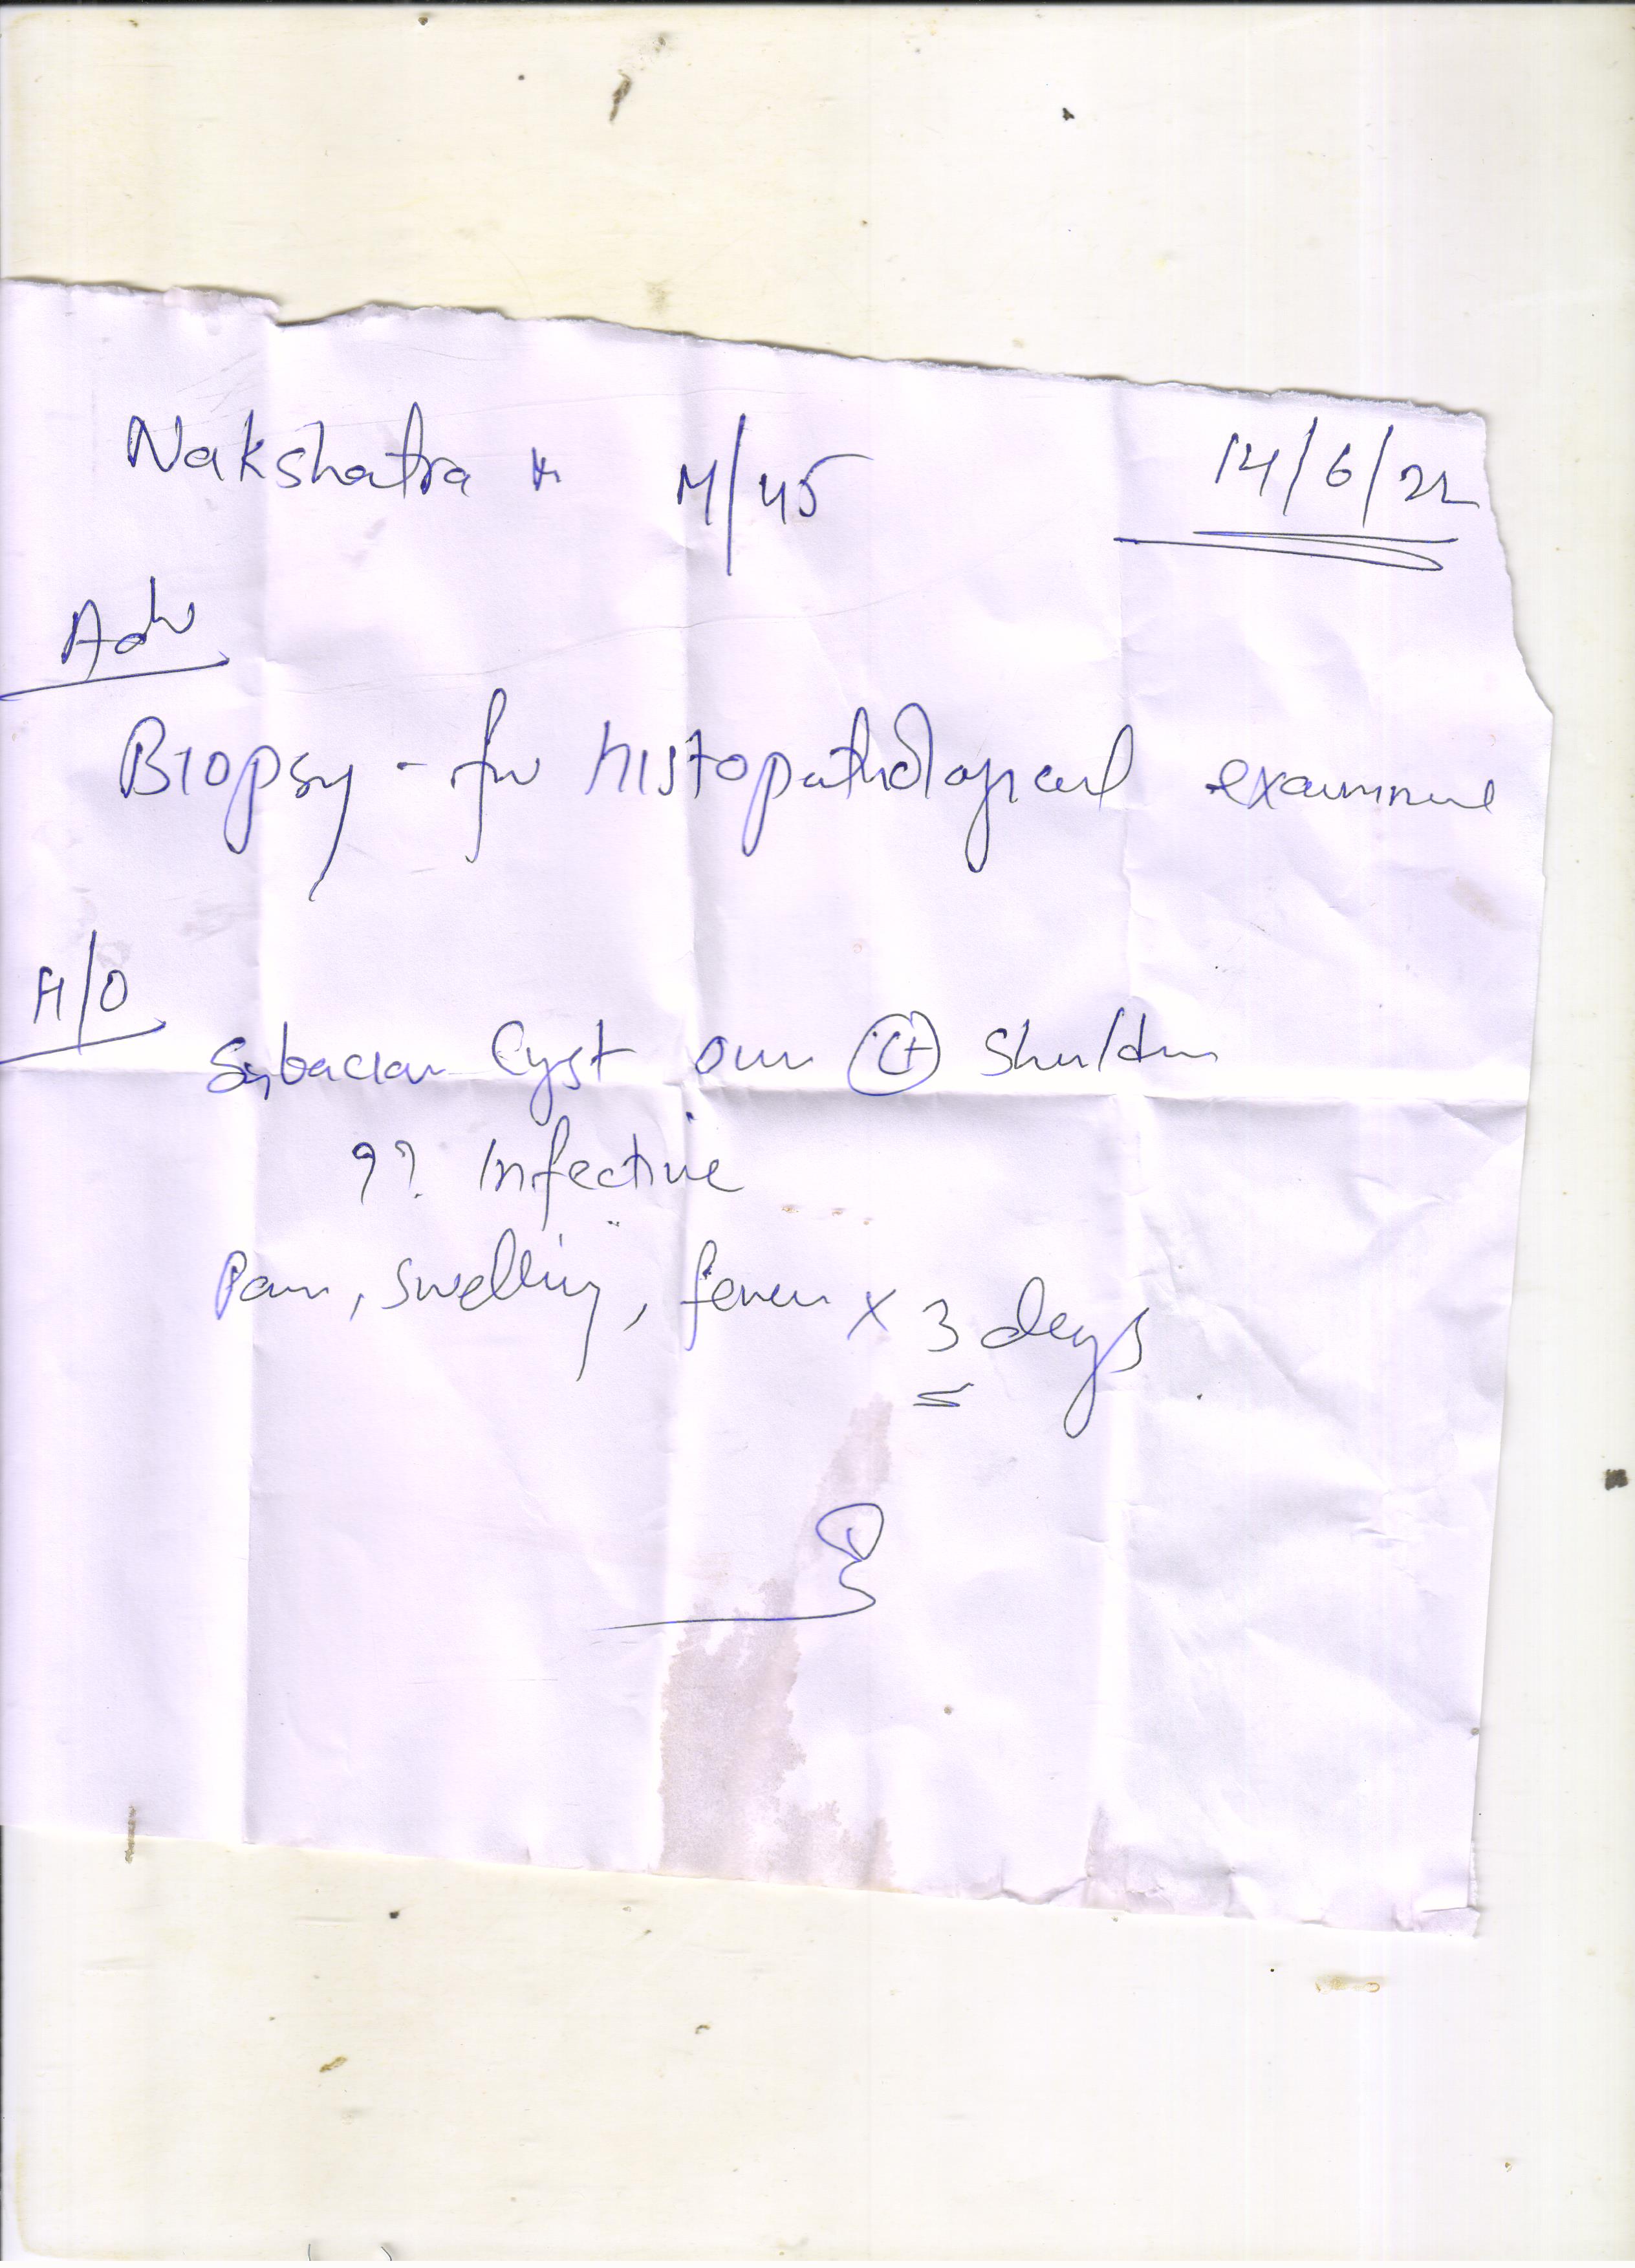 Nakshatra K M/45 14/6/22
Adv
Biopsy - for histopathological examine
H/O
Sybacian Cyst over Lt Shoulder
?? Infective
Pain, swelling, fever x 3 days